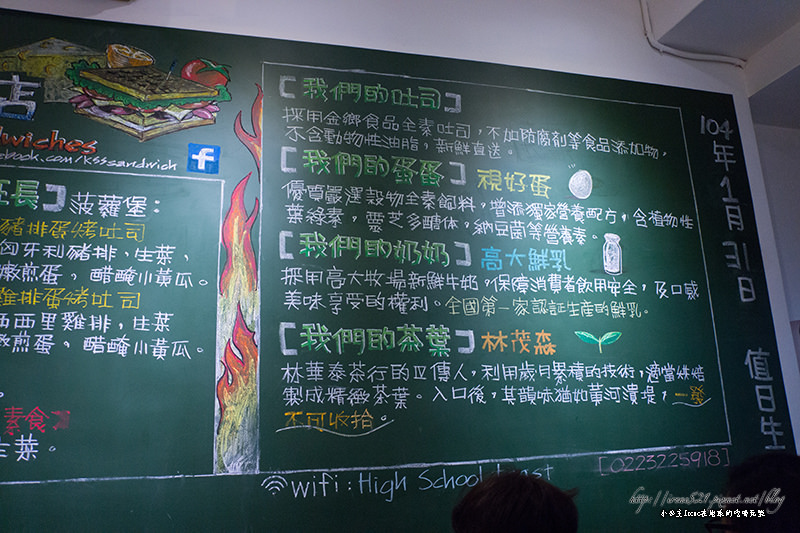 店
wiches
ebook.com/ksssandwich
f
班長】菠蘿堡:
豬排蛋烤吐司
匈牙利豬排,生菜,
嫩煎蛋,醋醃小黃瓜。
雞排蛋烤吐司
西西里雞排,生菜
嫩煎蛋,醋醃小黃瓜。
素食
生菜。
【我們的吐司】
採用金鄉食品全素吐司,不加防腐劑等食品添加物,
不含動物性油脂,新鮮直送。
【我們的蛋蛋】視好蛋
優質嚴選穀物全素飼料,增添獨家營養配方,含植物性
葉綠素,靈芝多醣体,納豆菌等營養素。
【我們的奶奶】高大鮮乳
採用高大牧場新鮮牛奶。保障消費者飲用安全,及口感
美味享受的權利。全國第一家認証生產的鮮乳。
【我們的茶葉】林茂森
林華泰茶行的立傳人,利用歲月累積的技術,適當烘焙
製成精緻茶葉。入口後,其韻味猶如黃河潰堤,一發
不可收拾。
wifi : High School toast
[0223225918]
104年1月31日
值日生
http://irene521.pixnet.net/blog
小公主Irene在地球的吃喝玩樂